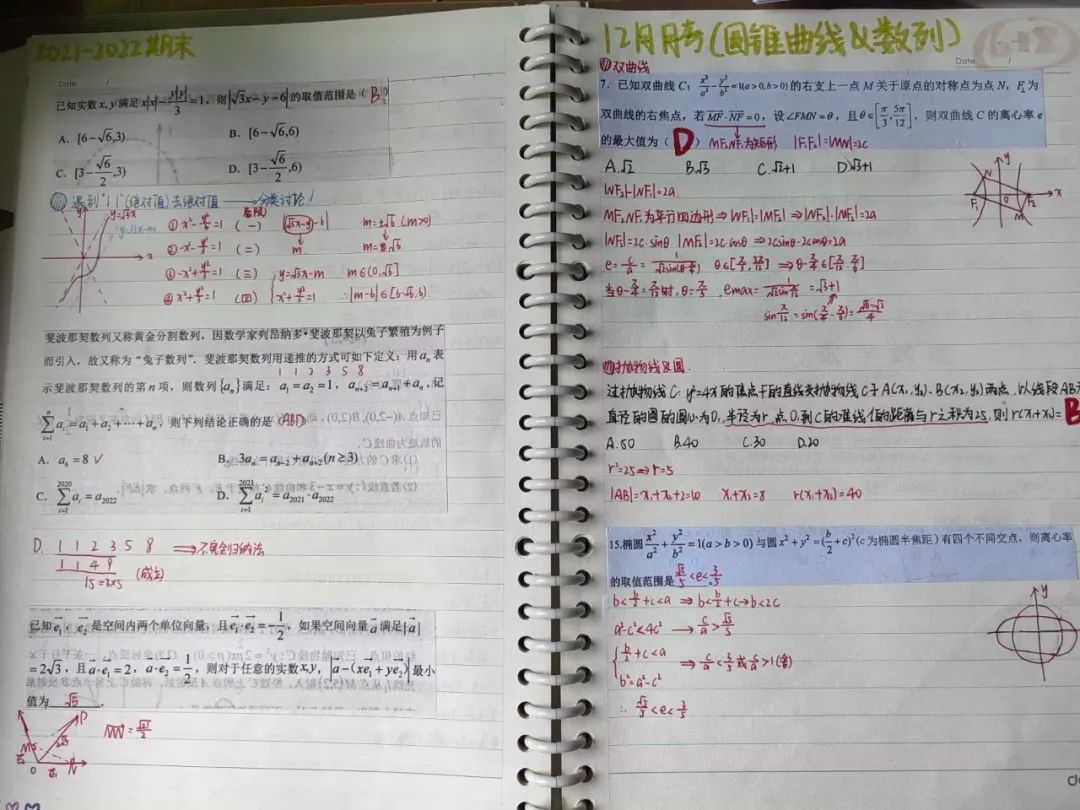 2021-2022期末
Date
已知实数x, y满足x|x| - y|y|/3 = 1，则|√3x - y - 6|的取值范围是( B )
A. [6-√6,3) B. [6-√6,6)
C. [3-√6/2,3) D. [3-√6/2,6)
遇到"| |"(绝对值)去绝对值 → 分类讨论!
y=√3x
y=√3x-m
① x²-y²/3=1 (一) |√3x-y-6| m=±√6 (m>0)
② -x²-y²/3=1 (二) m
③ -x²+y²/3=1 (三) y=√3x-m m∈(0,√6]
④ x²+y²/3=1 (四) x²+y²/3=1 ∴|m-6|∈[6-√6,6)
斐波那契数列又称黄金分割数列，因数学家列昂纳多·斐波那契以兔子繁殖为例子
而引入，故又称为“兔子数列”．斐波那契数列用递推的方式可如下定义：用aₙ表
1 1 2 3 5 8
示斐波那契数列的第n项，则数列{aₙ}满足：a₁=a₂=1，aₙ₊₂=aₙ₊₁+aₙ，记
∑ⁿᵢ₌₁ aᵢ=a₁+a₂+⋯+aₙ，则下列结论正确的是(ABD)
A. a₆=8 √ B. 3aₙ=aₙ₋₂+aₙ₊₂(n≥3)
C. ∑²⁰²⁰ᵢ₌₁ aᵢ=a₂₀₂₂ D. ∑²⁰²¹ᵢ₌₁ aᵢ²=a₂₀₂₁·a₂₀₂₂
D. 1 1 2 3 5 8 ⇒不完全归纳法
1 1 4 9 (成立)
15=3×5
已知e₁，e₂是空间内两个单位向量，且e₁·e₂=-1/2，如果空间向量a满足|a|
=2√3，且a·e₁=2，a·e₂=1/2，则对于任意的实数x,y，|a-(xe₁+ye₂)|最小
值为 √5 .
P
2√3
M
O e₁ N
12月月考(圆锥曲线&数列)
Date
双曲线
7. 已知双曲线C: x²/a²-y²/b²=1(a>0,b>0)的右支上一点M关于原点的对称点为点N，F₂为
双曲线的右焦点，若MF·NF=0，设∠FMN=θ，且θ∈[π/3,5π/12]，则双曲线C的离心率e
的最大值为( D ) MF₁NF₂为矩形 |F₁F₂|=|MN|=2c
A.√2 B.√3 C.√2+1 D.√3+1
|NF₂|-|NF₁|=2a
MF₂NF₁为平行四边形⇒|NF₁|=|MF₂|⇒|NF₂|-|MF₂|=2a
|NF₂|=2c·sinθ |MF₂|=2c cosθ ⇒2csinθ-2ccosθ=2a
e=c/a=1/(√2sin(θ-π/4)) θ∈[π/3,5π/12] ⇒θ-π/4∈[π/12,π/6]
当θ-π/4=π/12时,θ=π/3, emax=1/(√2sinπ/12)=√3+1
sinπ/12=sin(π/3-π/4)=(√6-√2)/4
y
N
F₁ F₂ x
M
抛物线&圆
过抛物线C: y²=4x的焦点F的直线交抛物线C于A(x₁,y₁)、B(x₂,y₂)两点，以线段AB为
直径的圆的圆心为O₁,半径为r,点O₁到C的准线l的距离与r之积为25,则r(x₁+x₂)=B
A.50 B.40 C.30 D.20
r²=25⇒r=5
|AB|=x₁+x₂+2=10 x₁+x₂=8 r(x₁+x₂)=40
15.椭圆x²/a²+y²/b²=1(a>b>0)与圆x²+y²=(b/2+c)²(c为椭圆半焦距)有四个不同交点，则离心率
的取值范围是 √5/5<e<3/5
b<b/2+c<a ⇒b<b/2+c→b<2c
a²-c²<4c² → c/a>√5/5
b/2+c<a
⇒c/a<3/5或c/a>1(舍)
b²=a²-c²
∴ √5/5<e<3/5
y